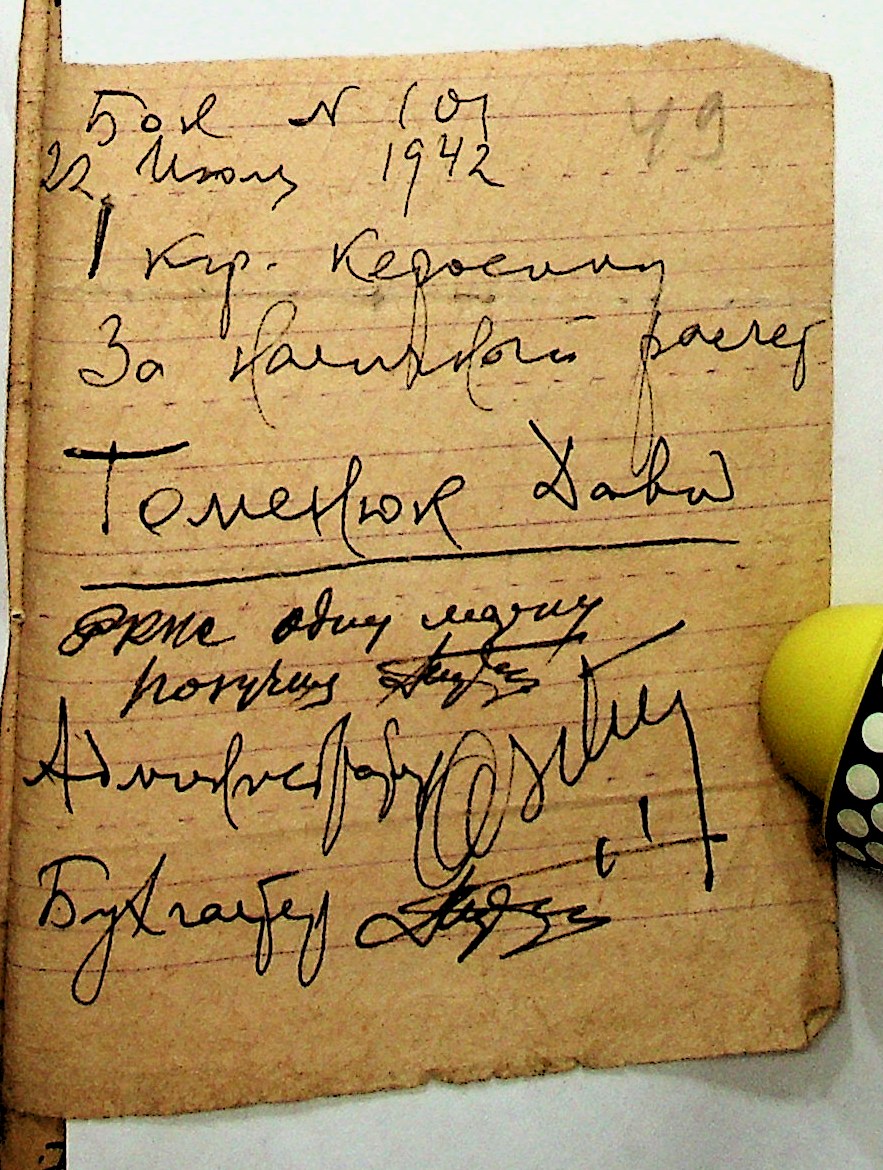 Бон N 101
49
22 Июля 1942
1 кгр. Керосину
За наличный расчет
Томенюк Давид
одну марку
получил
Администратор
Бухгалтер